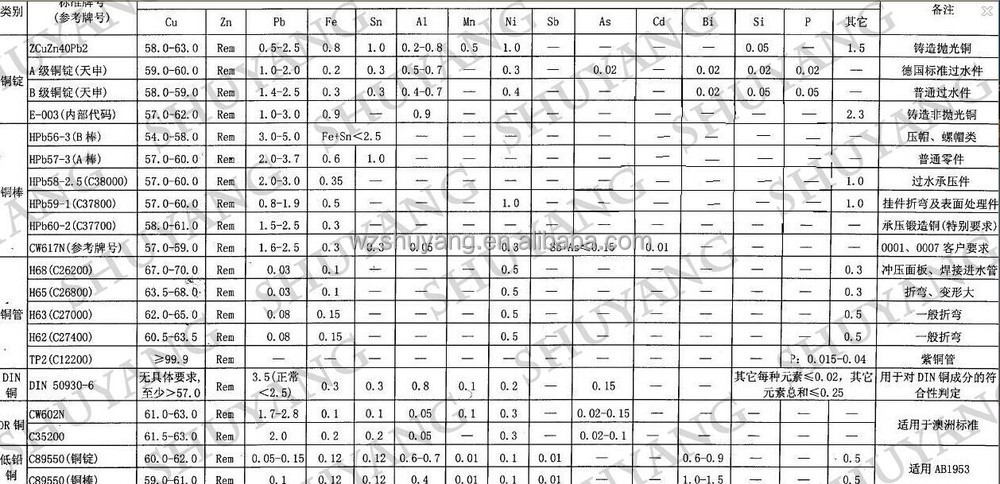 类别 标准牌号 Cu Zn Pb Fe Sn Al Mn Ni Sb As Cd Bi Si P 其它 备注
(参考牌号)
铜锭 ZCuZn40Pb2 58.0-63.0 Rem 0.5-2.5 0.8 1.0 0.2-0.8 0.5 1.0 — — — — 0.05 — 1.5 铸造抛光铜
A级铜锭(天申) 59.0-60.0 Rem 1.0-2.0 0.2 0.3 0.5-0.7 — 0.3 — 0.02 — 0.02 0.02 0.02 — 德国标准过水件
B级铜锭(天申) 58.0-59.0 Rem 1.4-2.5 0.3 0.3 0.4-0.7 — 0.4 — — — 0.02 0.05 0.05 — 普通过水件
E-003(内部代码) 57.0-62.0 Rem 1.0-3.0 0.9 — 0.9 — — — — — — — — 2.3 铸造非抛光铜
铜棒 HPb56-3(B棒) 54.0-58.0 Rem 3.0-5.0 Fe+Sn<2.5 — — — — — — — — — — 压帽、螺帽类
HPb57-3(A棒) 57.0-60.0 Rem 2.0-3.7 0.6 1.0 — — — — — — — — — — 普通零件
HPb58-2.5(C38000) 57.0-60.0 Rem 2.0-3.0 0.35 — — — — — — — — — — 1.0 过水承压件
HPb59-1(C37800) 57.0-60.0 Rem 0.8-1.9 0.5 — — — 1.0 — — — — — — 1.0 挂件折弯及表面处理件
HPb60-2(C37700) 58.0-61.0 Rem 1.5-2.5 0.3 — — — — — — — — — — — 承压锻造铜(特别要求)
CW617N(参考牌号) 57.0-59.0 Rem 1.6-2.5 0.3 0.3 0.05 — 0.3 — 0.01 — — — — 0001、0007客户要求
铜管 H68(C26200) 67.0-70.0 Rem 0.03 0.1 — — — 0.5 — — — — — — 0.3 冲压面板、焊接进水管
H65(C26800) 63.5-68.0 Rem 0.03 0.1 — — — 0.5 — — — — — — 0.3 折弯、变形大
H63(C27000) 62.0-65.0 Rem 0.08 0.15 — — — 0.5 — — — — — — 0.5 一般折弯
H62(C27400) 60.5-63.5 Rem 0.08 0.15 — — — 0.5 — — — — — — 0.5 一般折弯
TP2(C12200) ≥99.9 Rem — — — — — — — — — — P: 0.015-0.04 紫铜管
DIN铜 DIN 50930-6 无具体要求, Rem 3.5(正常 0.3 0.3 0.8 0.1 0.2 — 0.15 — 其它每种元素≤0.02,其它 用于对DIN铜成分的符
至少>57.0 <2.5) 元素总和≤0.25 合性判定
DR铜 CW602N 61.0-63.0 Rem 1.7-2.8 0.1 0.1 0.05 0.1 0.3 — 0.02-0.15 — — — — — 适用于澳洲标准
C35200 61.5-63.0 Rem 2.0 0.2 0.2 0.05 — 0.3 — 0.02-0.1 — — — — —
低铅铜 C89550(铜锭) 60.0-62.0 Rem 0.05-0.15 0.12 0.12 0.6-0.7 0.01 0.1 0.01 — — 0.6-0.9 — — 0.5 适用AB1953
C89550(铜棒) 59.0-61.0 Rem 0.1 0.12 0.12 0.4 0.01 0.1 0.01 — — 1.0-1.5 — — 0.5
SHUYANG
shuyang.en.alibaba.com